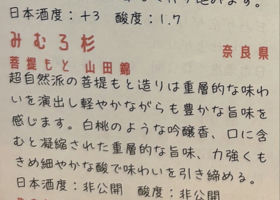 日本酒度：+3　酸度：1.7
みむろ杉　奈良県
菩提もと 山田錦
超自然派の菩提もと造りは重層的な味わ
いを演出し軽やかながらも豊かな旨味を
感じます。白桃のような吟醸香、口に含
むと凝縮された重層的な旨味、力強くも
きめ細やかな酸で味わいを引き締める。
日本酒度：非公開　酸度：非公開